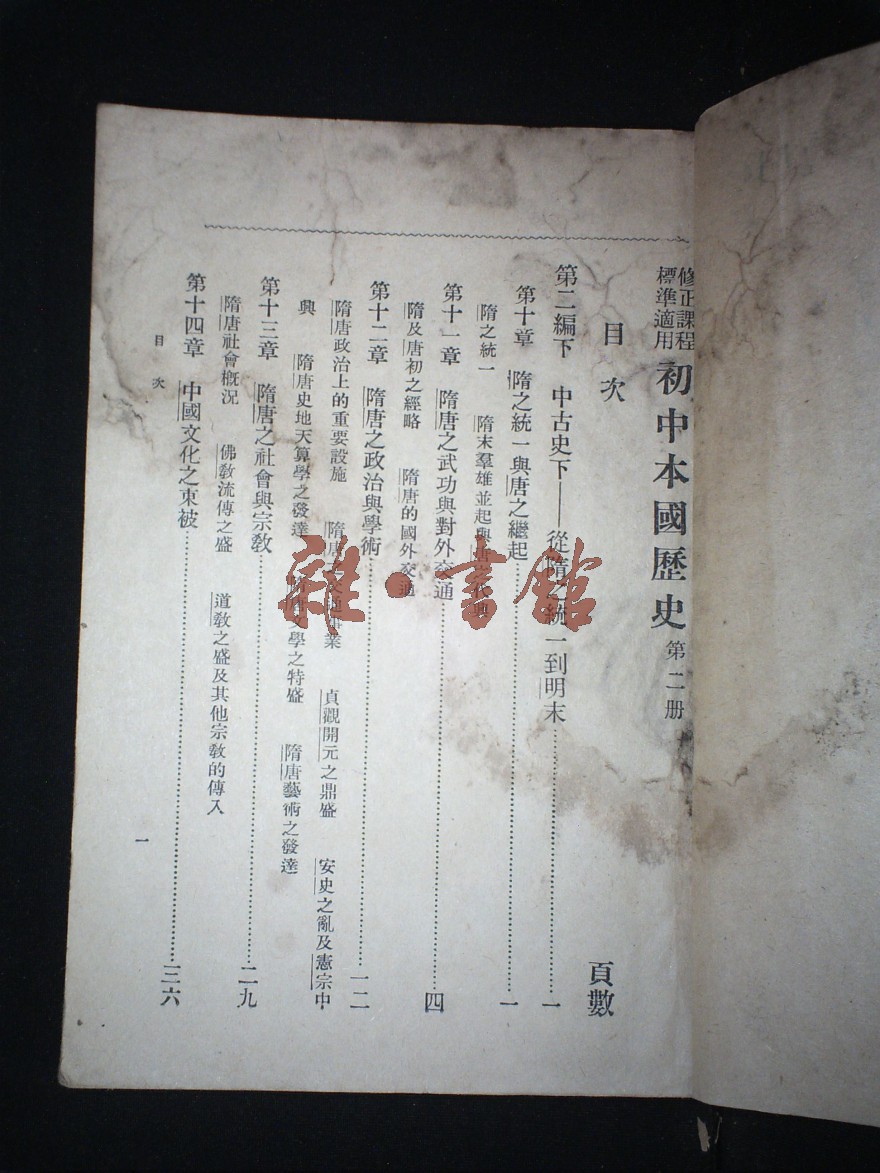 修正課程
標準適用
初中本國歷史 第二册
目次
頁數
第二編下 中古史下——從隋之統一到明末……一
第十章 隋之統一與唐之繼起……一
隋之統一 隋末羣雄並起與唐 代興
第十一章 隋唐之武功與對外交通……四
隋及唐初之經略 隋唐的國外交通
第十二章 隋唐之政治與學術……一二
隋唐政治上的重要設施 隋唐 交通事業 貞觀開元之鼎盛 安史之亂及憲宗中
興 隋唐史地天算學之發達 隋唐文學之特盛 隋唐藝術之發達
第十三章 隋唐之社會與宗敎……二九
隋唐社會槪況 佛敎流傳之盛 道敎之盛及其他宗敎的傳入
第十四章 中國文化之東被……三六
目次
一
雜·書館